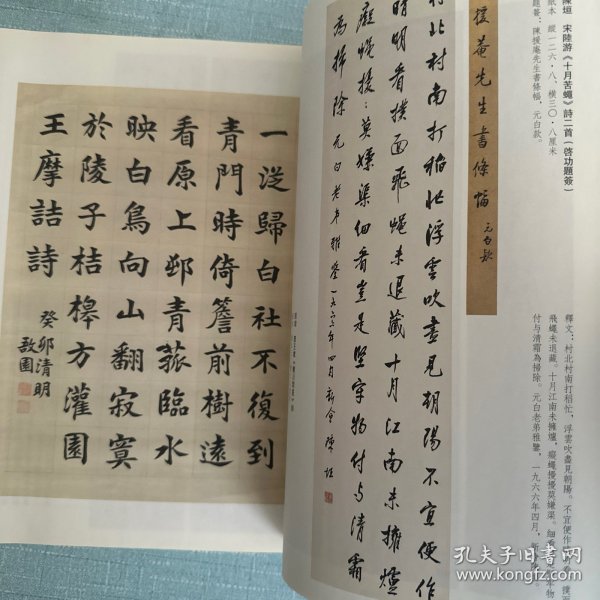 一從歸白社不復到
青門時倚簷前樹遠
看原上邨青菰臨水
映白鳥向山翻寂寞
於陵子桔槔方灌園
王摩詰詩
癸卯清明
啟園
村北村南打稻忙浮雲吹盡見朝陽不宜便作
晴明看撲面飛蠅未退藏十月江南未擁爐
癡蠅擾擾莫嫌渠細看豈是堅牢物付与清霜
為掃除 元白老弟雅鑒 一九六六年四月 新會陳垣
援菴先生書條幅
元白款
陳垣 宋陸游《十月苦蠅》詩二首（啓功題簽）
紙本 縱一二六·八、橫三〇·八厘米
題簽：陳援庵先生書條幅，元白款。
釋文：村北村南打稻忙，浮雲吹盡見朝陽。不宜便作
飛蠅未退藏。十月江南未擁爐，癡蠅擾擾莫嫌渠。細看
付与清霜為掃除。元白老弟雅鑒，一九六六年四月，新
孔夫子旧书网
www.kongfz.com